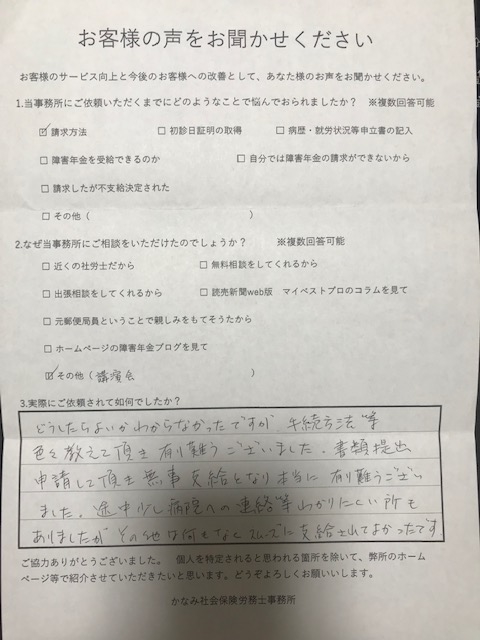 お客様の声をお聞かせください
お客様のサービス向上と今後のお客様への改善として、あなた様のお声をお聞かせください。
1.当事務所にご依頼いただくまでにどのようなことで悩んでおられましたか？　※複数回答可能
☑ 請求方法　□ 初診日証明の取得　□ 病歴・就労状況等申立書の記入
□ 障害年金を受給できるのか　□ 自分では障害年金の請求ができないから
□ 請求したが不支給決定された
□ その他（　　　）
2.なぜ当事務所にご相談をいただけたのでしょうか？　※複数回答可能
□ 近くの社労士だから　□ 無料相談をしてくれるから
□ 出張相談をしてくれるから　□ 読売新聞web版　マイベストプロのコラムを見て
□ 元郵便局員ということで親しみをもてそうだから
□ ホームページの障害年金ブログを見て
☑ その他（講演会　　　）
3.実際にご依頼されて如何でしたか？
どうしたらよいかわからなかったですが 手続方法等
色々教えて頂き有り難うございました。書類提出
申請して頂き無事支給となり本当に有り難うござい
ました。途中少し病院への連絡等わかりにくい所も
ありましたが その他は何もなくスムーズに支給されてよかったです
ご協力ありがとうございました。　個人を特定されると思われる箇所を除いて、弊所のホーム
ページ等で紹介させていただきたいと思います。どうぞよろしくお願いいします。
かなみ社会保険労務士事務所